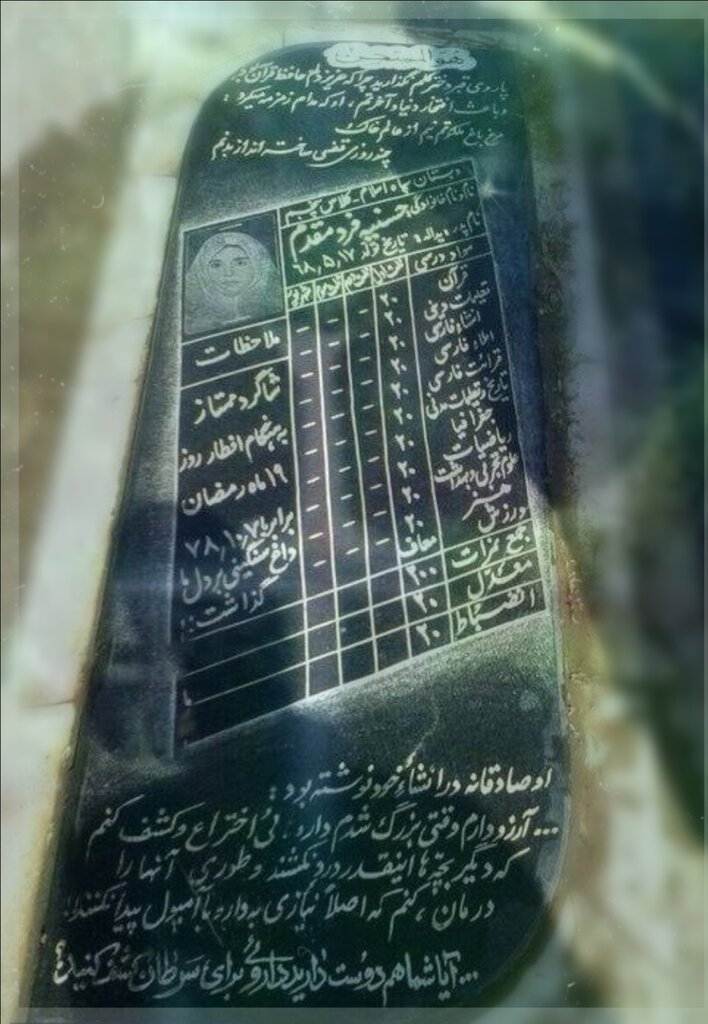 هو المستعان
پا روی قبر و دفتر قلم نگذارید چرا که عزیز دلم حافظ قرآن بود
و باعث افتخار دنیا و آخرتم، او که مدام زمزمه میکرد:
مرغ باغ ملکوتم نیم از عالم خاک
چند روزی قفسی ساخته اند از بدنم
دبستان اسلام - کلاس پنجم
نام و نام خانوادگی: حسنیه فرد مقدم
نام پدر: یداله تاریخ تولد ۶۸,۵,۱۷
مواد درسی
قرآن ۲۰ - - -
تعلیمات دینی ۲۰ - - -
انشاء فارسی ۲۰ - - -
املاء فارسی ۲۰ - - -
قرائت فارسی ۲۰ - - -
تاریخ و تعلیمات مدنی ۲۰ - - -
جغرافیا ۲۰ - - -
ریاضیات ۲۰ - - -
علوم تجربی و بهداشت ۲۰ - - -
هنر ۲۰ - - -
ورزش معاف - - -
جمع نمرات ۲۰۰
معدل ۲۰
انضباط ۲۰
ملاحظات
شاگرد ممتاز
بهنگام افطار روز
۱۹ ماه رمضان
برابر با ۷۸,۱۰,۷
داغ سنگینی بر دل ما
گذاشت !!
او صادقانه در انشاء خود نوشته بود:
... آرزو دارم وقتی بزرگ شدم داروئی اختراع و کشف کنم
که دیگر بچه ها اینقدر درد نکشند و طوری آنها را
درمان کنم که اصلاً نیازی به دارو یا آمپول پیدا نکنند!
... آیا شما هم دوست دارید داروئی برای سرطان کشف کنید؟